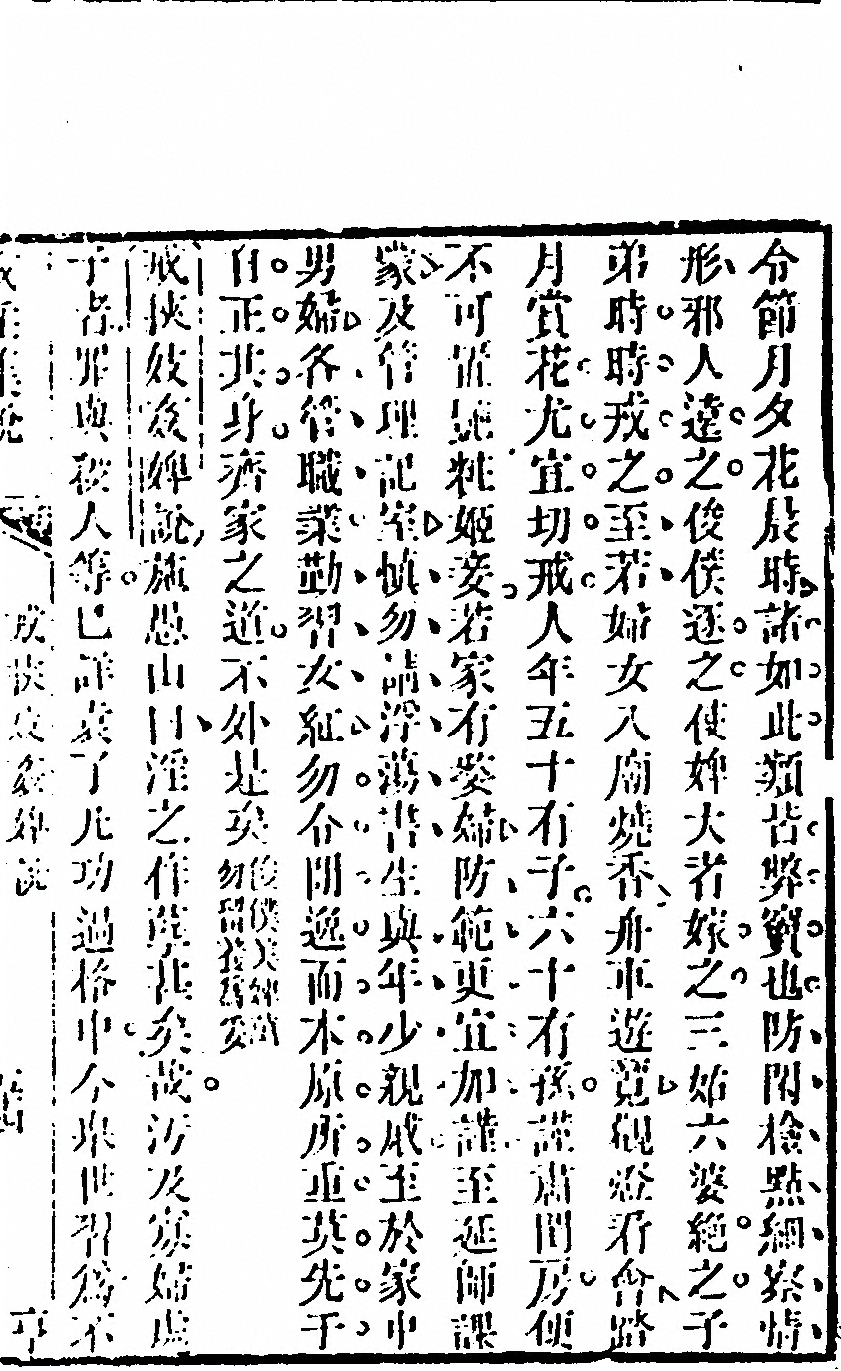 令節月夕花晨時諸如此類苦弊竇也防閑檢點細察情
形邪人遠之俊僕逐之使婢大者嫁之三姑六婆絶之子
弟時時戒之至若婦女入廟燒香舟車遊覽觀燈看會踏
月賞花尤宜切戒人年五十有子六十有孫謹肅閨房便
不可置艶粧姬妾若家有嫠婦防範更宜加謹至延師課
蒙及管理記室愼勿請浮蕩書生與年少親戚至於家中
男婦各管職業勤習女紅勿令閒逸而本原所重莫先于
自正其身齊家之道不外是矣俊僕美婢
勿留
戒挾妓姦婢說施愚山曰淫之作孽甚矣哉汚及寡婦處
子者罪與殺人等已詳袁了凡功過格中今舉世習爲不
戒挾妓姦婢說